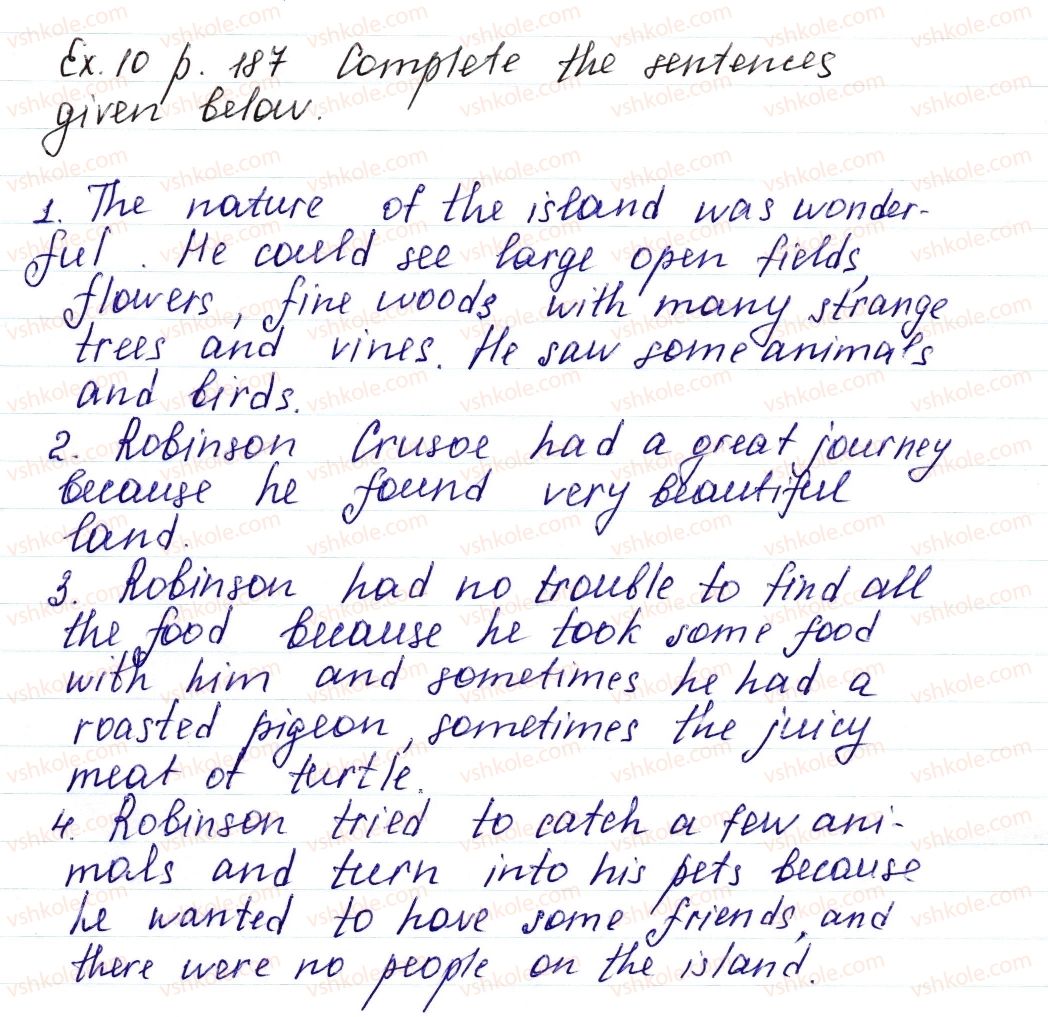 Ex. 10 p. 187 Complete the sentences
given below.
1. The nature of the island was wonder-
ful. He could see large open fields,
flowers, fine woods with many strange
trees and vines. He saw some animals
and birds.
2. Robinson Crusoe had a great journey
because he found very beautiful
land.
3. Robinson had no trouble to find all
the food because he took some food
with him and sometimes he had a
roasted pigeon, sometimes the juicy
meat of turtle.
4. Robinson tried to catch a few ani-
mals and turn into his pets because
he wanted to have some friends, and
there were no people on the island.